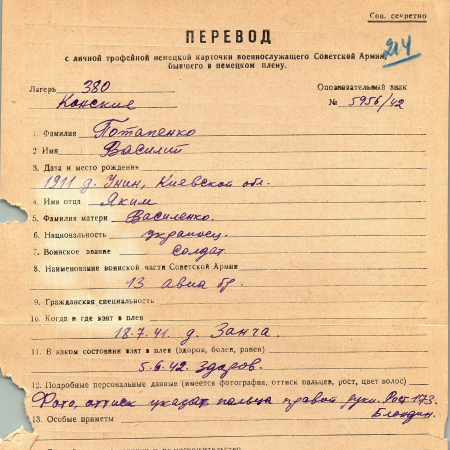 Сов. секретно
ПЕРЕВОД
с личной трофейной немецкой карточки военнослужащего Советской Армии,
бывшего в немецком плену.
214
Лагерь 380 Опознавательный знак
Конские № 5956/42
1. Фамилия Потапенко
2 Имя Василий
3. Дата и место рождения
1911 д. Унин, Киевской обл.
4. Имя отца Яким
5. Фамилия матери Василенко.
6. Национальность украинец.
7. Воинское звание Солдат.
8. Наименование воинской части Советской Армии
13 авиа бр.
9. Гражданская специальность
10. Когда и где взят в плен
18.7.41. д. Занча.
11. В каком состоянии взят в плен (здоров, болен, ранен)
5.6.42. здоров.
12. Подробные персональные данные (имеется фотография, оттиск пальцев, рост, цвет волос)
Фото, оттиск указат пальца правой руки. Рост 173.
Блондин.
13. Особые приметы